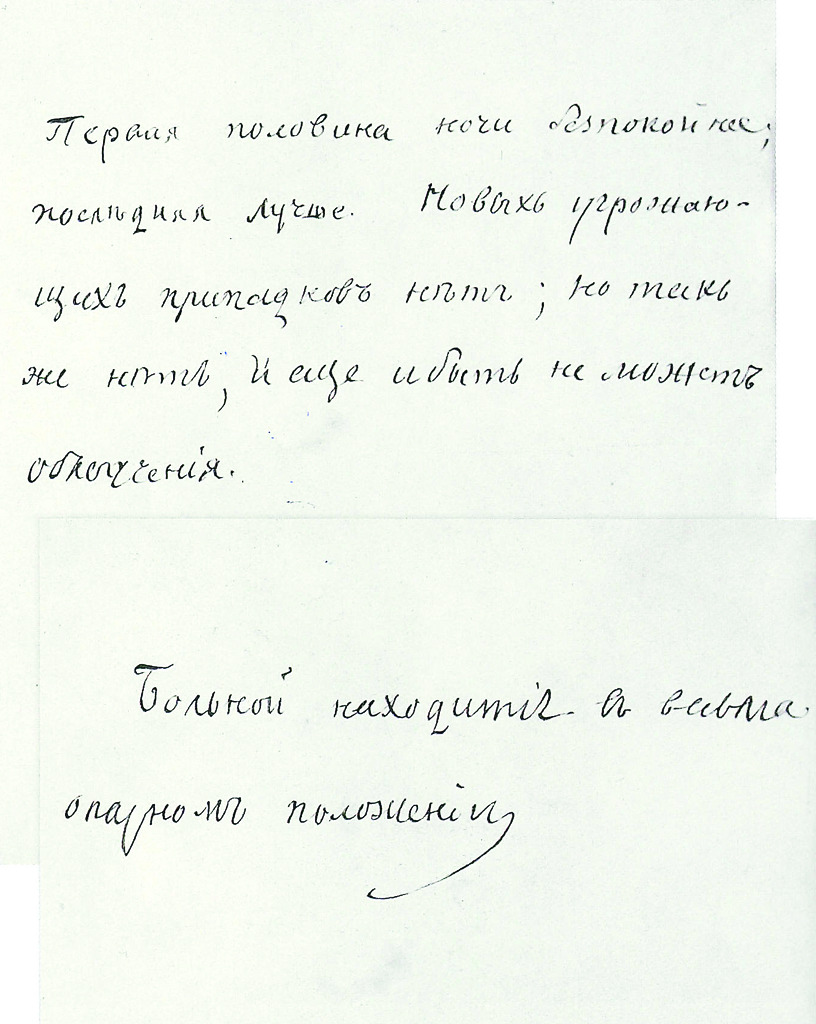 Первая половина ночи безпокойна;
послѣдняя лучше. Новыхъ угрожаю-
щихъ припадковъ нѣтъ; но такъ
же нѣтъ, и еще и быть не можетъ
облегченія.
Больной находится въ весьма
опасномъ положеніи